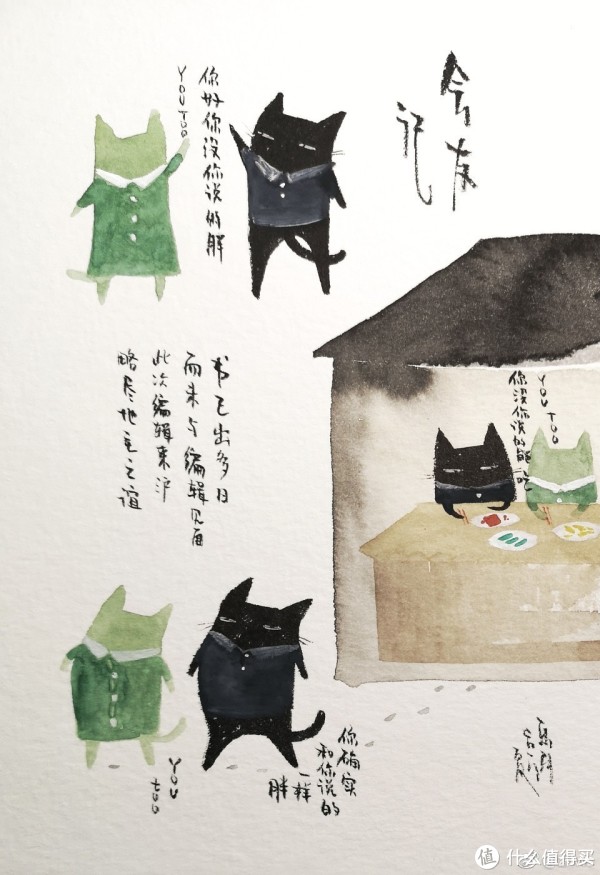 会友
记
你好你没你说的胖
YOU TOO
书已出多日
而未与编辑见面
此次编辑来沪
略尽地主之谊
YOU TOO
你没你说的能吃
你确实
和你说的
一样
胖
YOU
too
值 什么值得买